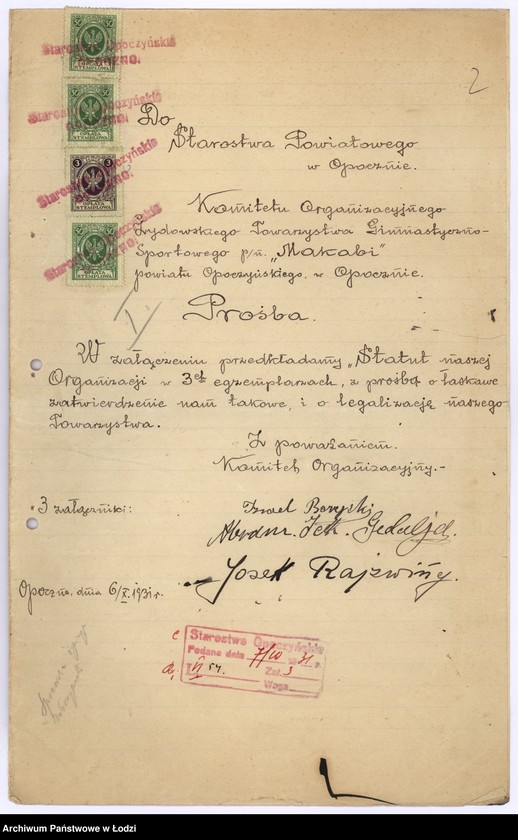 2
Do
Starostwa Powiatowego
w Opocznie.
Komitetu Organizacyjnego
Żydowskiego Towarzystwa Gimnastyczno-
Sportowego p/n. „Makabi"
powiatu Opoczyńskiego, w Opocznie.
Prośba.
I.
W załączeniu przedkładamy „Statut naszej
Organizacji w 3ch egzemplarzach, z prośbą o łaskawe
zatwierdzenie nam takowe, i o legalizację naszego
Towarzystwa.
Z poważaniem.
Komitet Organizacyjny.-
3 załączniki:
Josek Rajzwińy.
Opoczno, dnia 6/X. 1931 r.
Starostwo Opoczyńskie
Podane dnia 7/10 31 r.
Zał. 3
Waga
Starostwo Opoczyńskie
OPŁATA
STEMPLOWA
Starostwo Opoczyńskie
3 3
OPŁATA
STEMPLOWA
Starostwo Opoczyńskie
OPŁATA
STEMPLOWA
Archiwum Państwowe w Łodzi